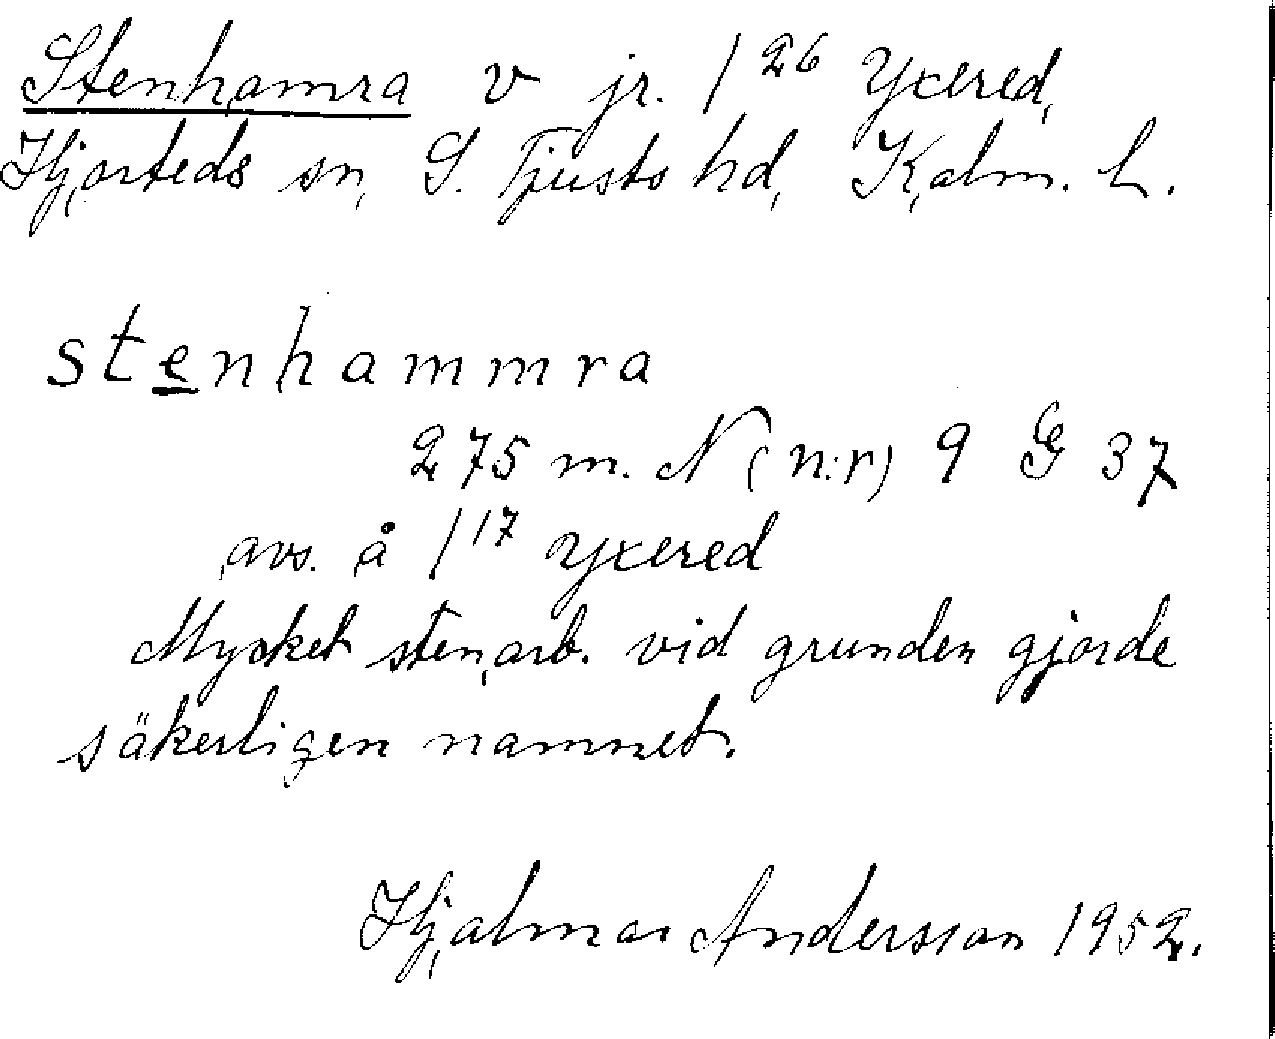 Stenhamra v jr. 1²⁶ Yxered,
Hjorteds sn, S. Tjusts hd, Kalm. L.
stenhammra
275 m. N (n:r) 9 G 37
avs. å 1¹⁷ Yxered
Mycket sten,arb. vid grunden gjorde
säkerligen namnet.
Hjalmar Andersson 1952.